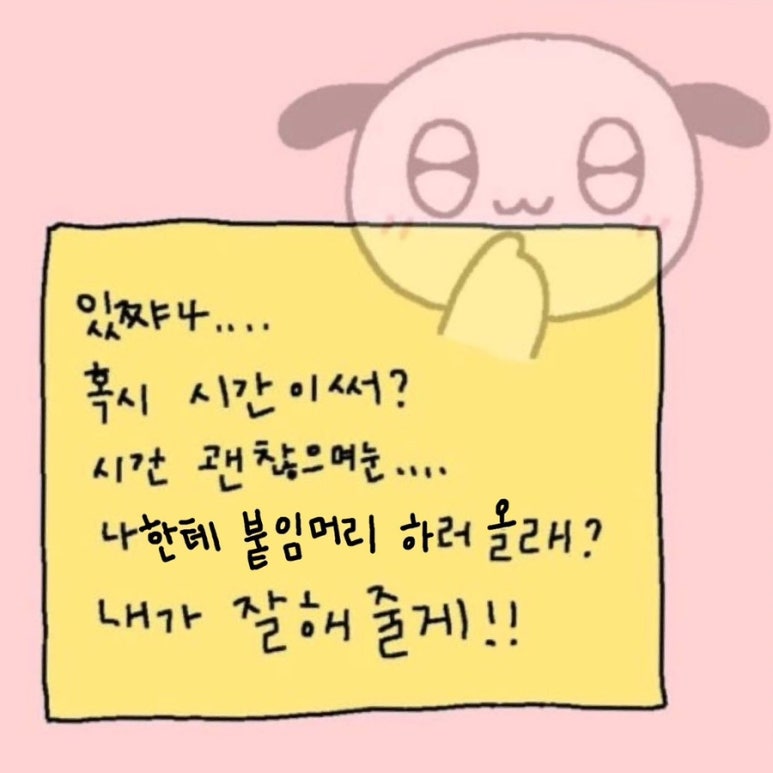 있쨔나....
혹시 시간이써?
시간 괜찮으며눈....
나한테 붙임머리 하러올래?
내가 잘해줄게!!